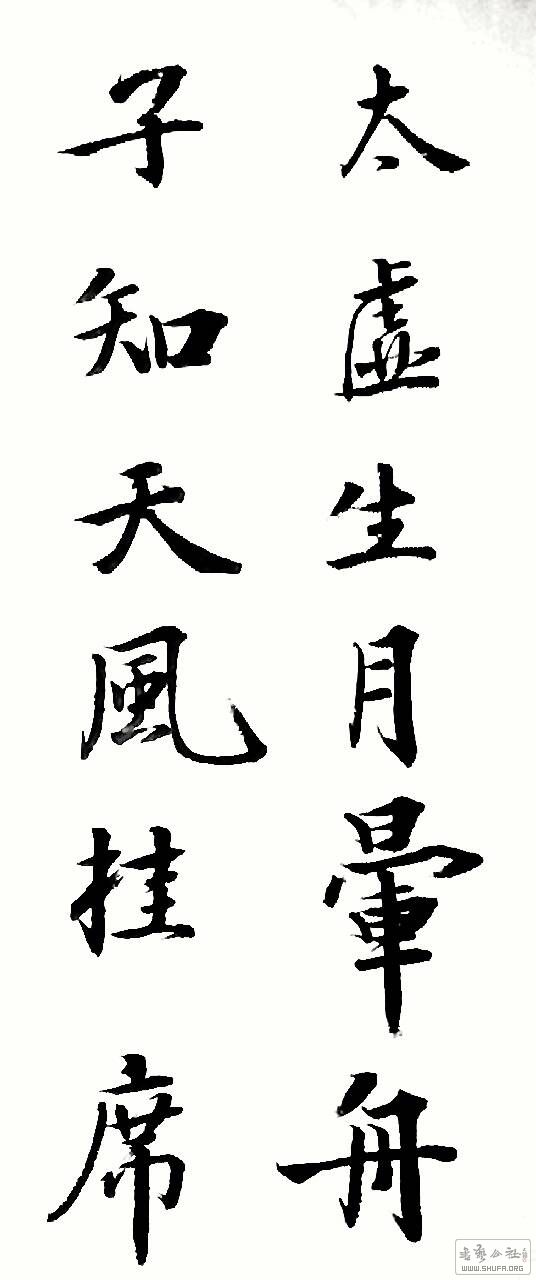 太虛生月暈舟
子知天風挂席
書藝公社
WWW.SHUFA.ORG